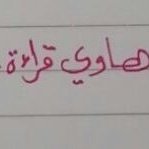 هاوي قراءة.